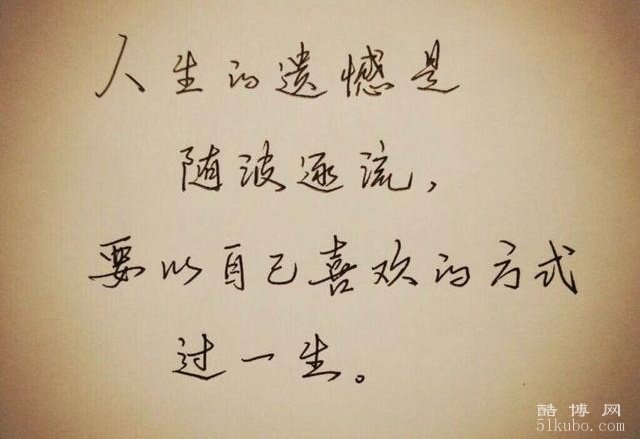 人生的遗憾是
随波逐流，
要以自己喜欢的方式
过一生。
酷博网
51kubo.com